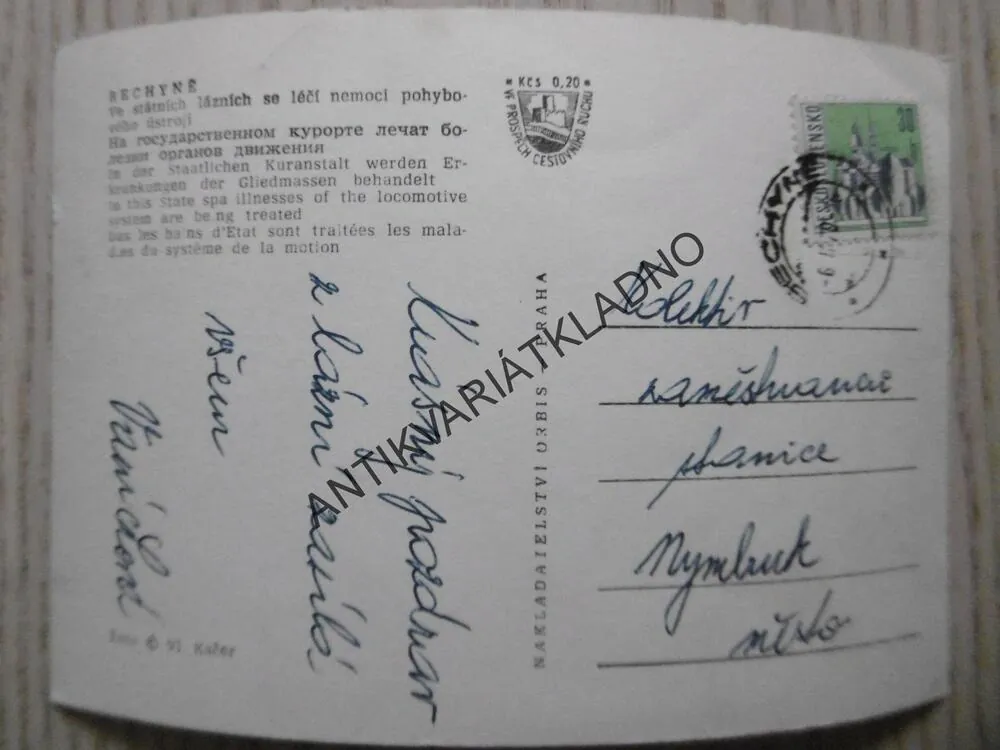 BECHYNĚ
Ve státních lázních se léčí nemoci pohybo-
vého ústrojí
На государственном курорте лечат бо-
лезни органов движения
In der Staatlichen Kuranstalt werden Er-
krankungen der Gliedmassen behandelt
In this State spa illnesses of the locomotive
system are being treated
Dans les bains d'Etat sont traitées les mala-
dies du système de la motion
Kčs 0,20
VE PROSPĚCH CESTOVNÍHO RUCHU
30
ČESKOSLOVENSKO
BECHYNĚ
Krásný pozdrav
z lázní zasílá
všem
NAKLADATELSTVÍ ORBIS PRAHA
Kolektiv
zaměstnanců
stanice
Nymburk
město
Foto © Vl Kačer
ANTIKVARIÁTKLADNO